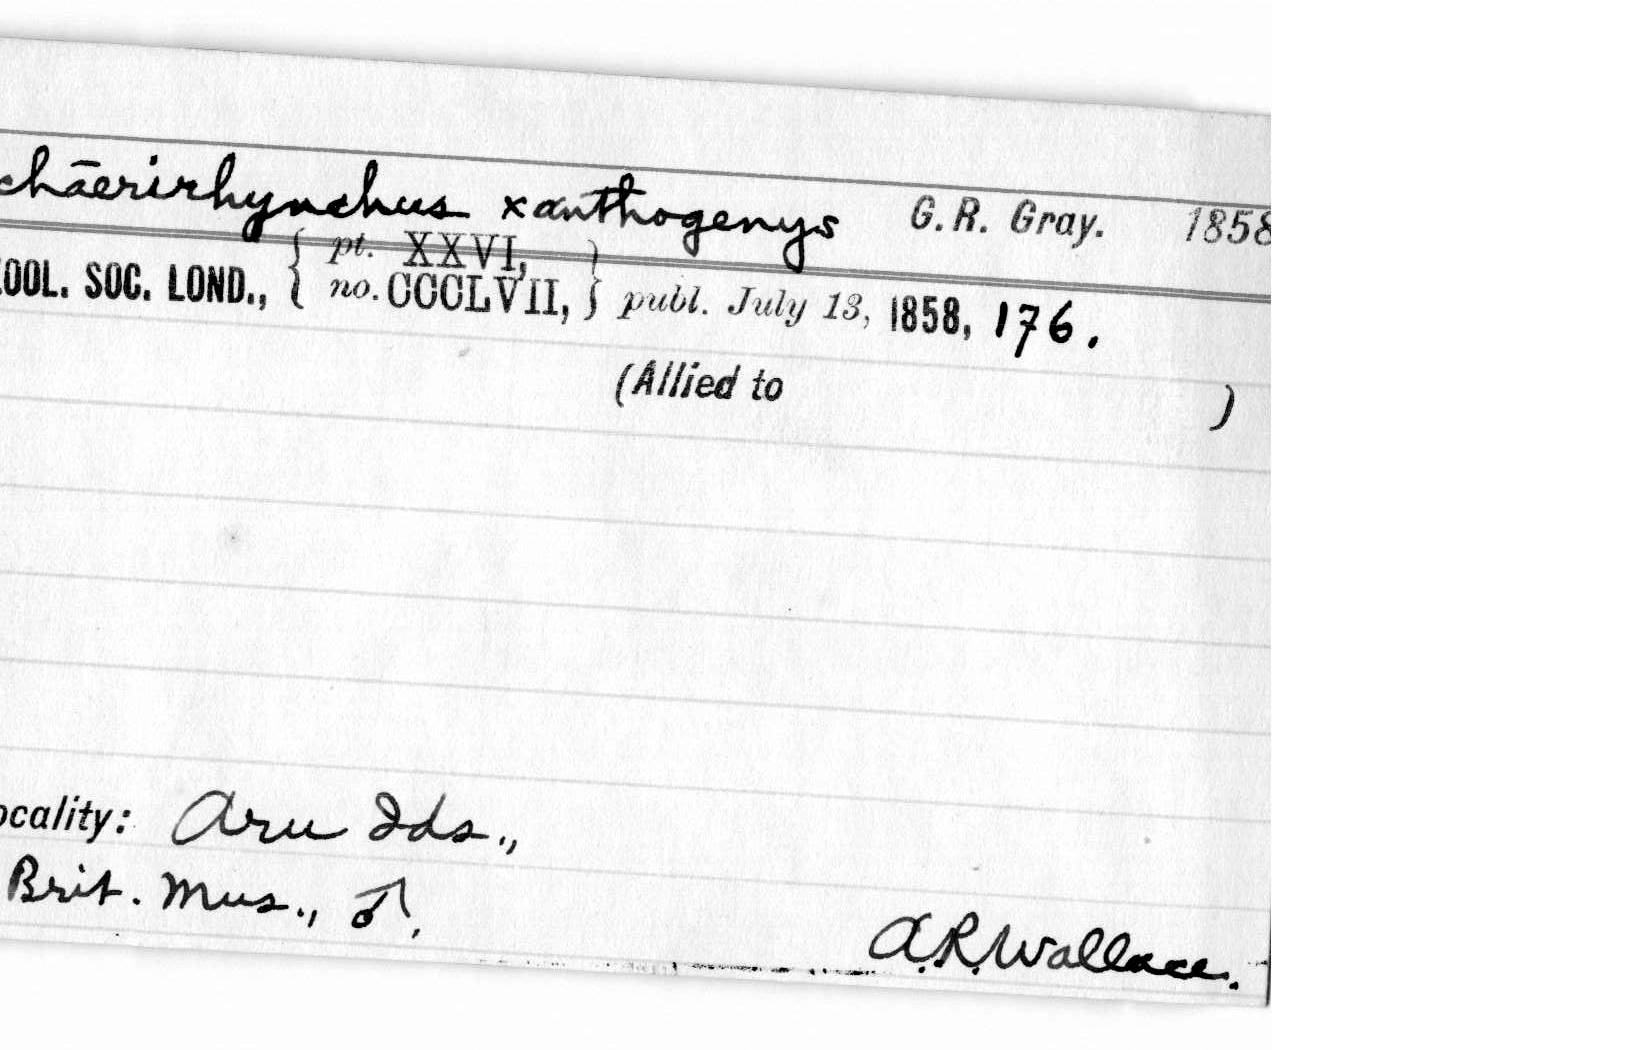 chāerirhynchus xanthogenys G. R. Gray. 1858
ZOOL. SOC. LOND., { pt. XXVI, no. CCCLVII, } publ. July 13, 1858, 176.
(Allied to )
ocality: Aru Ids.,
Brit. Mus., ♂,
A.R. Wallace.